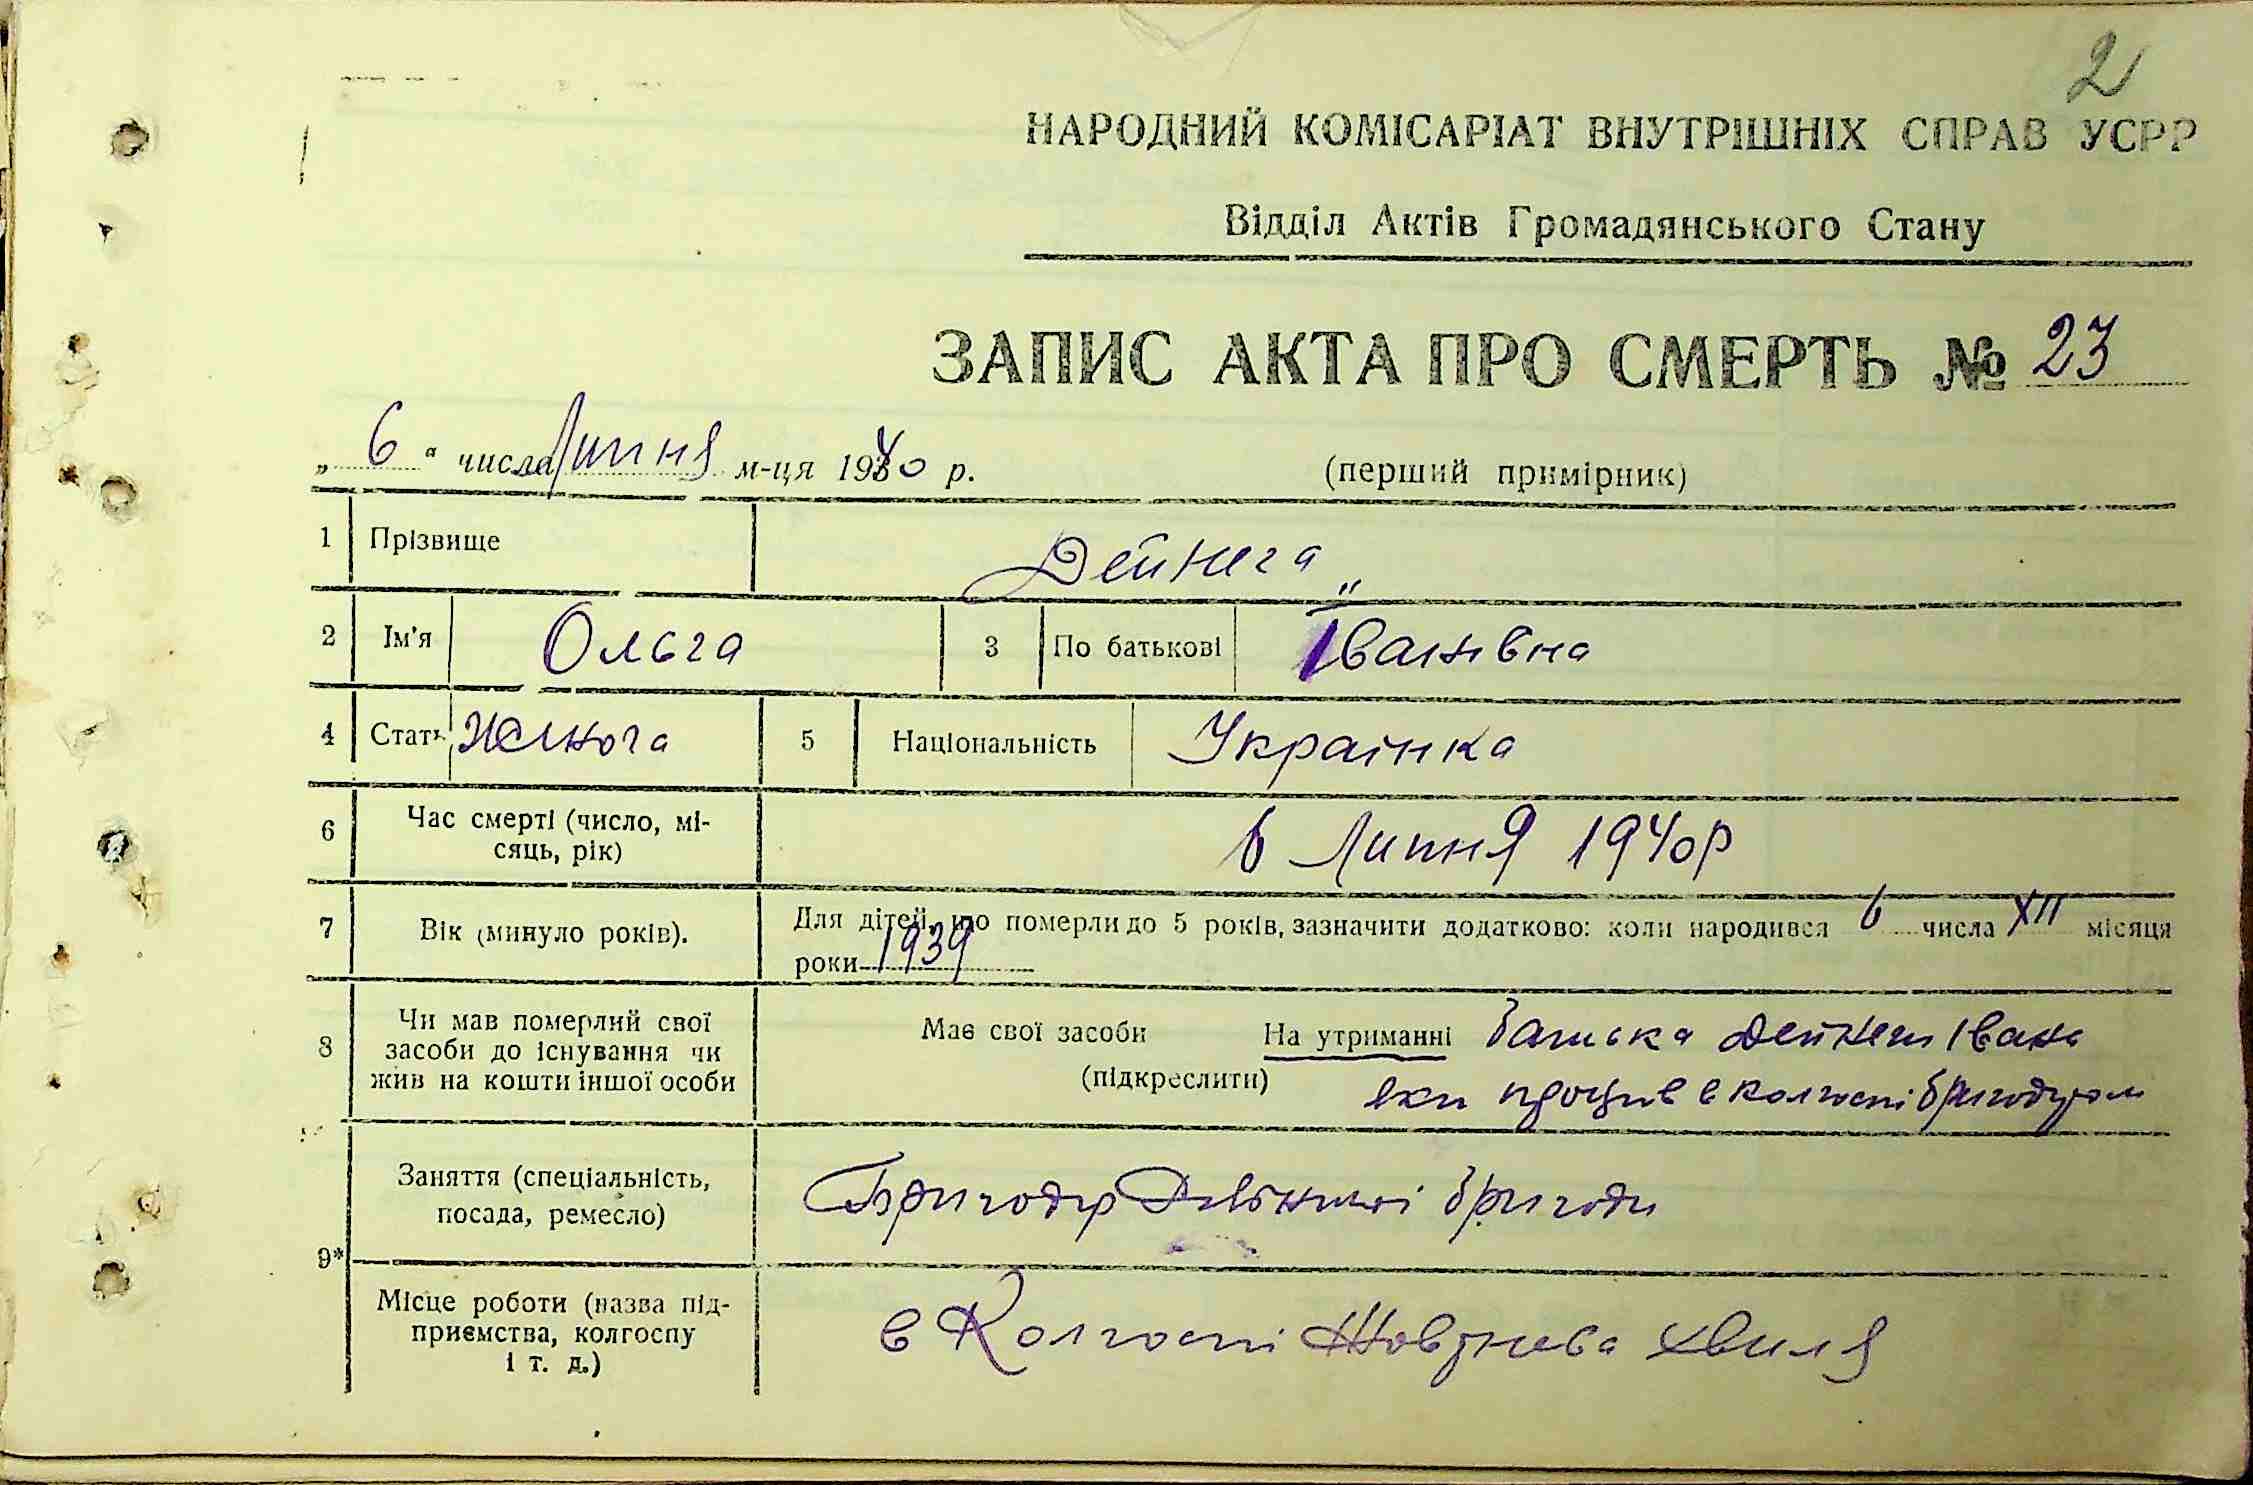 2
НАРОДНИЙ КОМІСАРІАТ ВНУТРІШНІХ СПРАВ УСРР
Відділ Актів Громадянського Стану
ЗАПИС АКТА ПРО СМЕРТЬ № 23
„ 6 “ числа Липня м-ця 1940 р. (перший примірник)
1 Прізвище Дейнега
2 Ім'я Ольга 3 По батькові Іванівна
4 Стать Жіноча 5 Національність Українка
6 Час смерті (число, мі-
сяць, рік) 6 Липня 1940р
7 Вік (минуло років). Для дітей, що померли до 5 років, зазначити додатково: коли народився 6 числа XII місяця
роки 1939
8 Чи мав померлий свої
засоби до існування чи
жив на кошти іншої особи
Має свої засоби На утриманні батька Дейнеги Іван
(підкреслити) яки працював в колгоспі бригадиром
9*
Заняття (спеціяльність,
посада, ремесло) Бригадир бригади
Місце роботи (назва під-
приємства, колгоспу
і т. д.) в Колгоспі Жовтнева хвиля